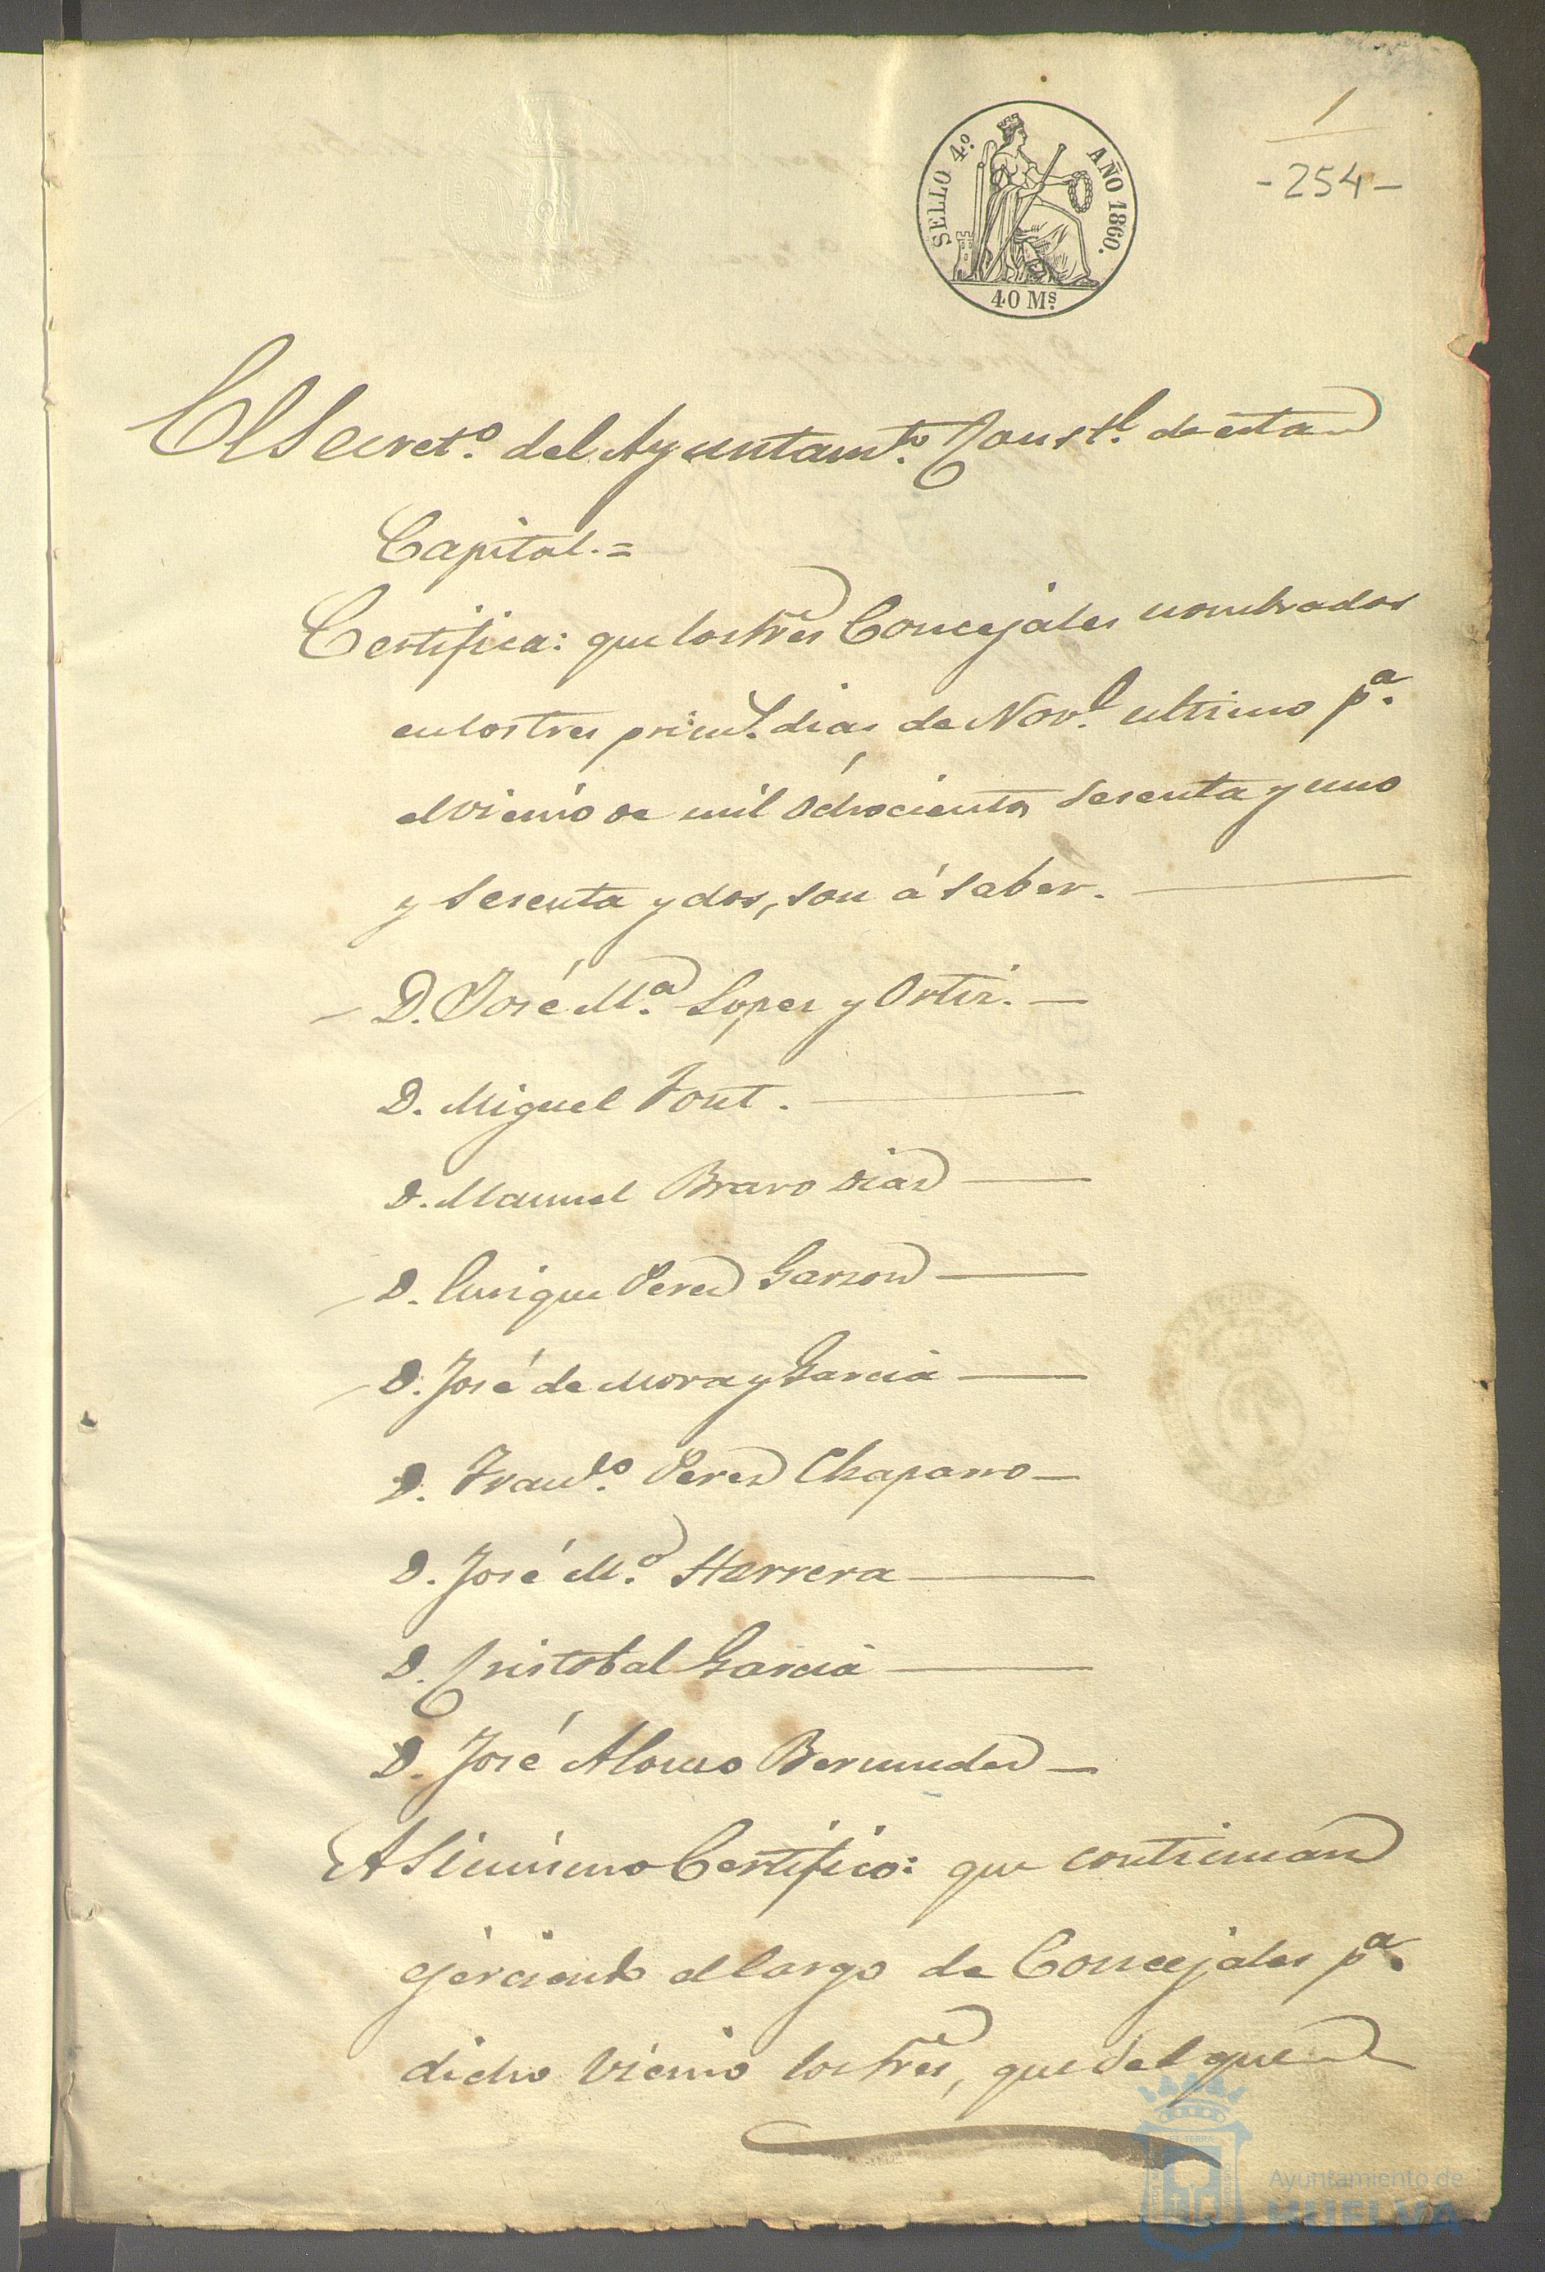 SELLO 4.º AÑO 1860.
40 M.s
1
- 254 -
El Secret.º del Ayuntam.to Const.l de esta
Capital.=
Certifica: que los Sres Concejales nombrados
en los tres prim.s dias de Nov.e ultimo p.a
el vienio de mil ochocientos sesenta y uno
y sesenta y dos, son á saber.
D. José M.a Lopez y Ortiz.
D. Miguel Font.
D. Manuel Bravo Diaz
D. Enrique Perez Garzon
D. José de Mora y Garcia
D. Fran.co Perez Chaparro
D. José M.a Herrera
D. Cristobal Garcia
D. José Alonso Bermudez
Asimismo Certifico: que continuan
ejerciendo el cargo de Concejales p.a
dicho vienio los Sres, que del que
Ayuntamiento de
HUELVA